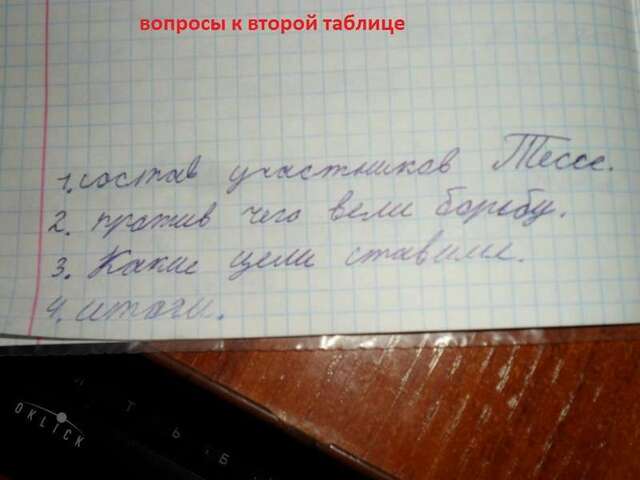 вопросы к второй таблице
1. состав участников Тессе.
2. против чего вели борьбу.
3. Какие цели ставили.
4. итоги.
OKLICK
И Т Ь Б